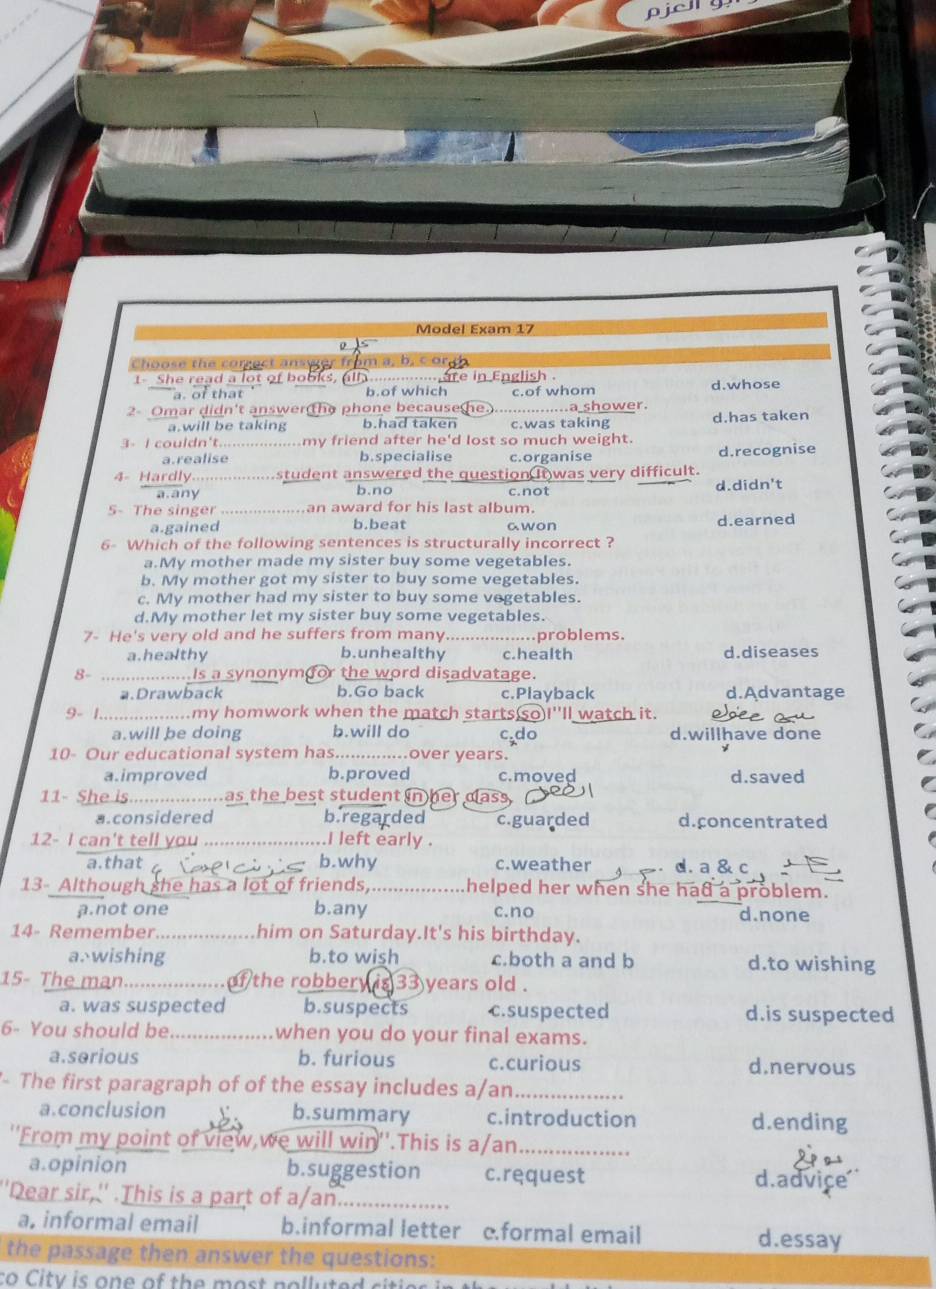 العزم
Model Exam 17
Choose the correct answer from a, b, c or
1- She read a lot of books, all..................are in English .
a. of that b.of which c.of whom d.whose
2- Omar didn't answer the phone because he................a shower.
a.will be taking b.had taken c.was taking d.has taken
3- I couldn't...................my friend after he'd lost so much weight.
a.realise b.specialise c.organise d.recognise
4- Hardly...................student answered the question.It was very difficult.
a.any b.no c.not d.didn't
5- The singer ...................an award for his last album.
a.gained b.beat c.won d.earned
6- Which of the following sentences is structurally incorrect ?
a.My mother made my sister buy some vegetables.
b. My mother got my sister to buy some vegetables.
c. My mother had my sister to buy some vegetables.
d.My mother let my sister buy some vegetables.
7- He's very old and he suffers from many...................problems.
a.healthy b.unhealthy c.health d.diseases
8- ...................Is a synonym for the word disadvatage.
a.Drawback b.Go back c.Playback d.Advantage
9- I...................my homwork when the match starts,so I''ll watch it.
a.will be doing b.will do c.do d.willhave done
10- Our educational system has...............over years.
a.improved b.proved c.moved d.saved
11- She is...................as the best student in her class.
a.considered b.regarded c.guarded d.concentrated
12- I can't tell you .........................I left early .
a.that b.why c.weather d. a & c
13- Although she has a lot of friends,...................helped her when she had a problem.
a.not one b.any c.no d.none
14- Remember....................him on Saturday.It's his birthday.
a.wishing b.to wish c.both a and b d.to wishing
15- The man....................of the robbery is 33 years old .
a. was suspected b.suspects c.suspected d.is suspected
6- You should be....................when you do your final exams.
a.serious b. furious c.curious d.nervous
- The first paragraph of of the essay includes a/an....................
a.conclusion b.summary c.introduction d.ending
"From my point of view,we will win".This is a/an....................
a.opinion b.suggestion c.request d.advice
"Dear sir,".This is a part of a/an....................
a, informal email b.informal letter c.formal email d.essay
the passage then answer the questions:
co City is one of the most polluted cities in the